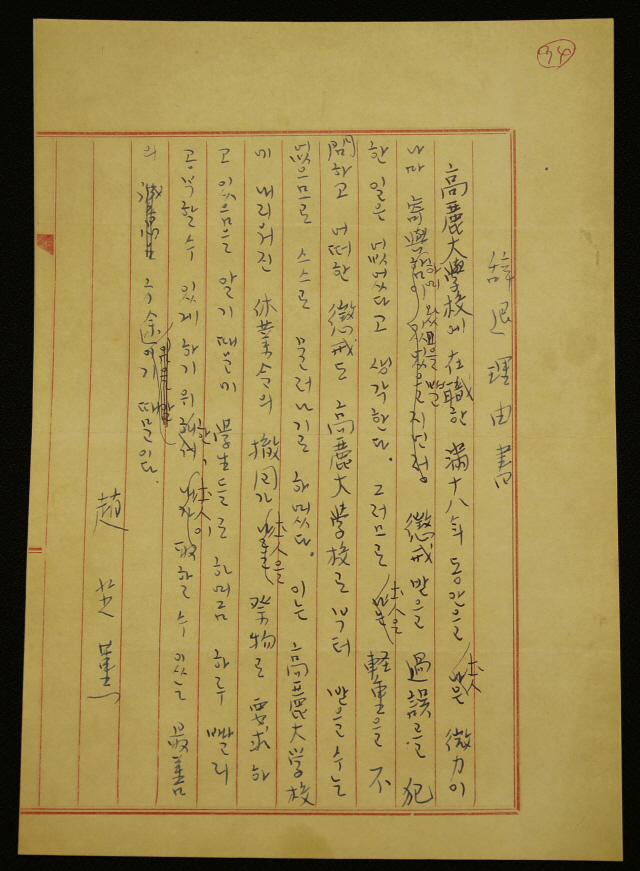 辭退理由書
高麗大學校에 在職한 滿十八年 동안 本人은 微力이
나마 寄與한 하여 왔 을망정 懲戒 받을 過誤를 犯
한 일은 없었다고 생각한다. 그러므로 本人은 輕重을 不
問하고 어떠한 懲戒도 高麗大學校로부터 받을 수는
없으므로 스스로 물러나기로 하였다. 이는 高麗大學校
에 내리워진 休業令의 撤回가 本人을 祭物로 要求하
고 있음을 알기 때문에 學生들로 하여금 하루 빨리
공부할 수 있게 하기 위한, 本人이 取할 수 있는 最善
의 길 때문이다.
趙芝薰